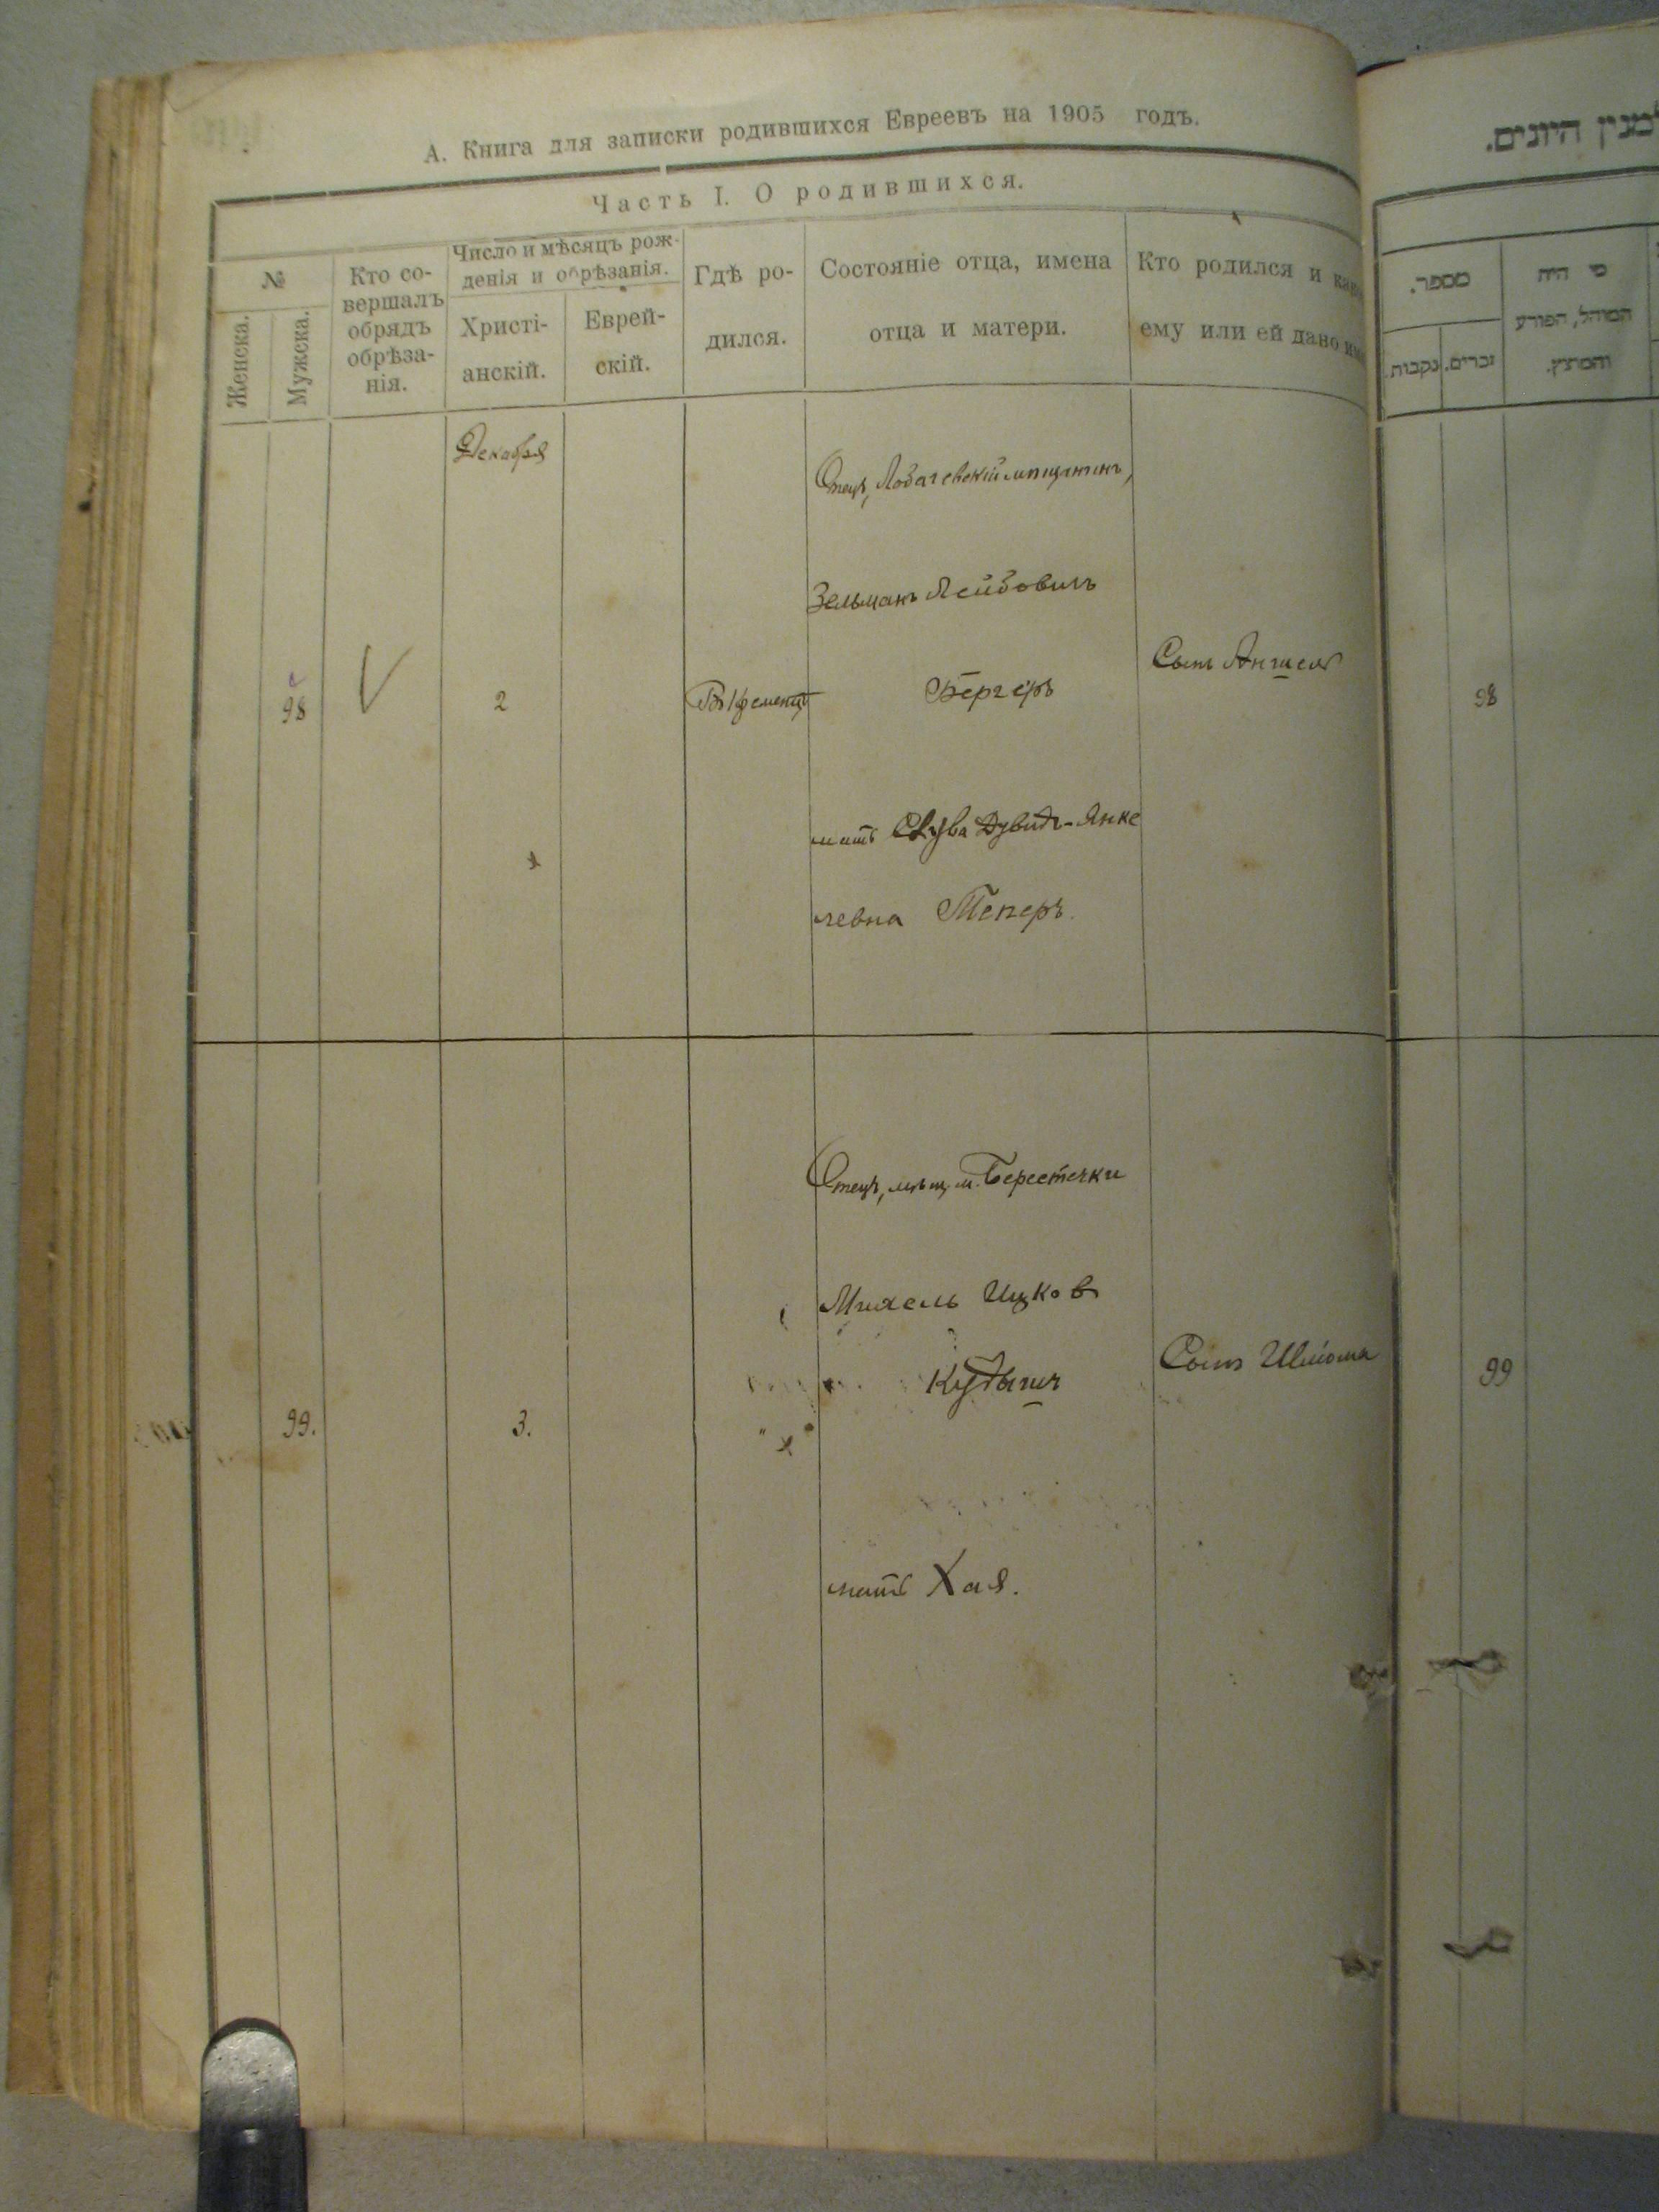 А. Книга для записки родившихся Евреевъ на 1905 годъ.
Часть I. О родившихся.
№
Женска.
Мужска.
Кто со-
вершалъ
обрядъ
обрѣза-
нія.
Число и мѣсяцъ рож-
денія и обрѣзанія.
Христі-
анскій.
Еврей-
скій.
Гдѣ ро-
дился.
Состояніе отца, имена
отца и матери.
Кто родился и како
ему или ей дано им
Декабря
98
2
Въ Кременцѣ
Отецъ, Лобачевскій мѣщанинъ,
Зельманъ Лейбовичъ
Бергеръ
мать Слува Дувидъ-Янке
левна Теперъ.
Сынъ Аншель
99.
3.
Отецъ, мѣщ. м. Берестечки
Михель Ицков
Кудыш
мать Хая.
Сынъ Шлиома
למנין היונים.
מספר.
נקבות.
זכרים.
מי היה
המוהל, הפורע
והמוצץ.
98
99